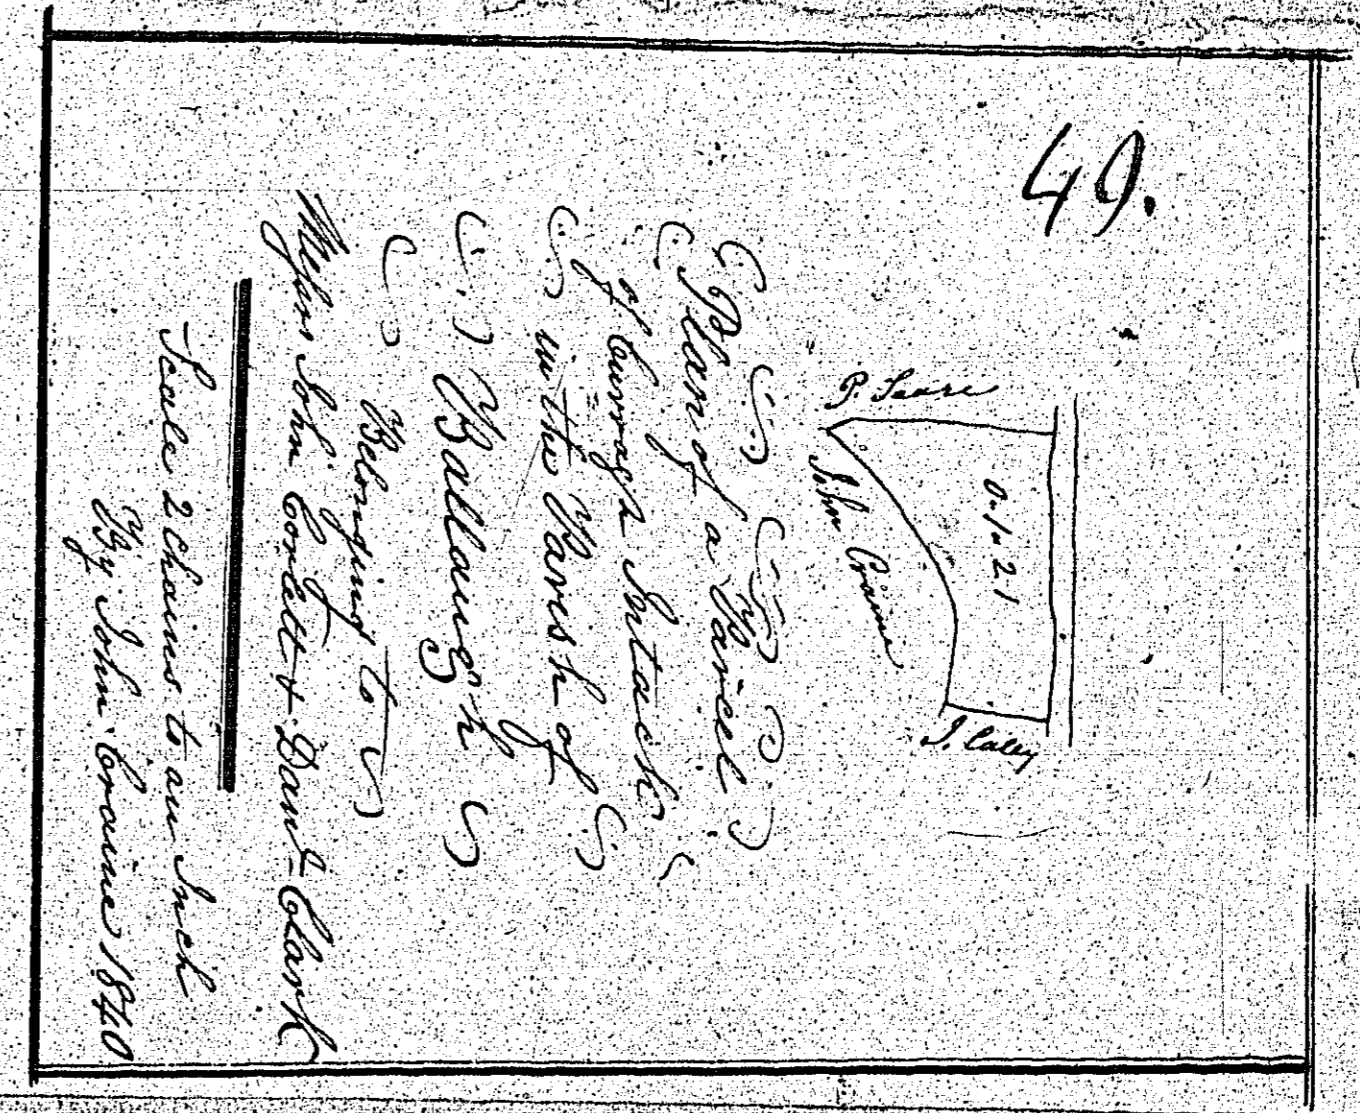 49.
P. Seare
0.1.21
John Craine
J. Caley
Plan of a Parcel
of Curragh Intack
in the Parish of
Ballaugh
Belonging to
Messrs John Corlett & Danl. Clark
Scale 2 Chains to an Inch
By John Craine 1840